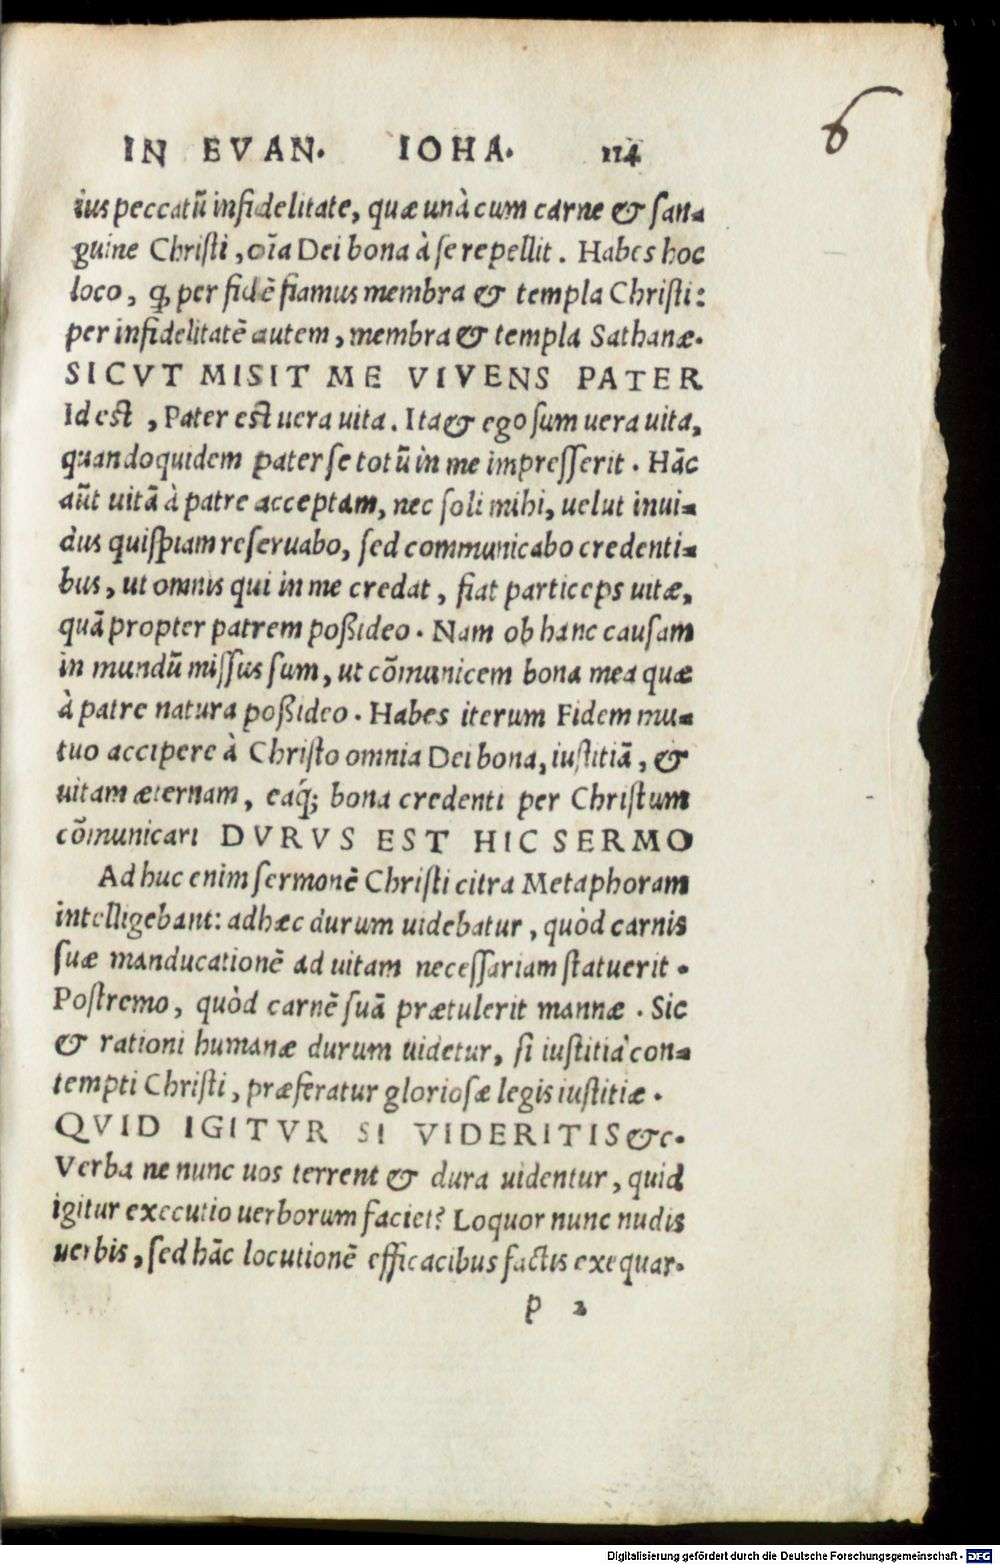 6
IN EVAN. IOHA. 114
ius peccatũ infidelitate, quæ unà cum carne & san=
guine Christi, oĩa Dei bona à se repellit. Habes hoc
loco, ꝙ per fidẽ fiamus membra & templa Christi:
per infidelitatẽ autem, membra & templa Sathanæ.
SICVT MISIT ME VIVENS PATER
Id est, Pater est uera uita. Ita & ego sum uera uita,
quandoquidem pater se totũ in me impresserit. Hãc
aũt uitã à patre acceptam, nec soli mihi, uelut inui=
dus quispiam reseruabo, sed communicabo credenti=
bus, ut omnis qui in me credat, fiat particeps uitæ,
quã propter patrem poßideo. Nam ob hanc causam
in mundũ missus sum, ut cõmunicem bona mea quæ
à patre natura poßideo. Habes iterum Fidem mu=
tuo accipere à Christo omnia Dei bona, iustitiã, &
uitam æternam, eaq́; bona credenti per Christum
cõmunicari DVRVS EST HIC SERMO
Adhuc enim sermonẽ Christi citra Metaphoram
intelligebant: adhæc durum uidebatur, quòd carnis
suæ manducationẽ ad uitam necessariam statuerit.
Postremo, quòd carnẽ suã prætulerit mannæ. Sic
& rationi humanæ durum uidetur, si iustitia con=
tempti Christi, præferatur gloriosæ legis iustitiæ.
QVID IGITVR SI VIDERITIS &c.
Verba ne nunc uos terrent & dura uidentur, quid
igitur executio uerborum faciet? Loquor nunc nudis
uerbis, sed hãc locutionẽ efficacibus factis exequar.
p 2
Digitalisierung gefördert durch die Deutsche Forschungsgemeinschaft - DFG